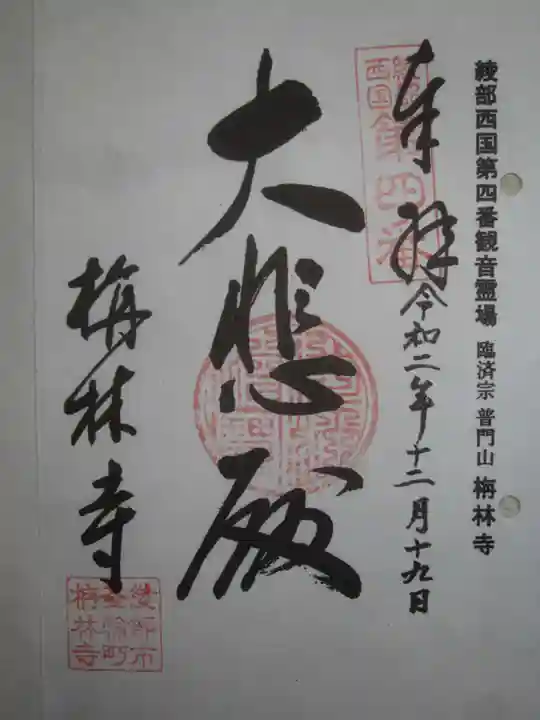 綾部西国第四番観音霊場 臨済宗 普門山 栴林寺
奉拝 令和二年十二月十九日
西国
第四番
大悲殿
栴林寺
綾部市
町
栴林寺